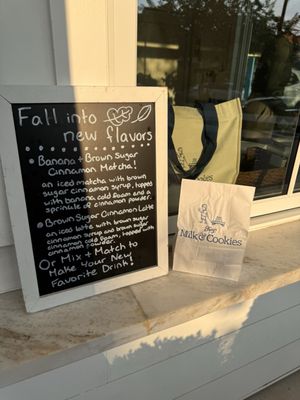 Fall into
new flavors
Banana + Brown Sugar
Cinnamon Matcha!
an iced matcha with brown
sugar cinnamon syrup, topped
with banana cold foam and a
sprinkle of cinnamon powder.
Brown Sugar Cinnamon Latte
an iced latte with brown sugar
cinnamon syrup and brown sugar
cinnamon cold foam, topped with
cinnamon powder.
Or Mix + Match to
Make Your New
Favorite Drink!
Milk & Cookies